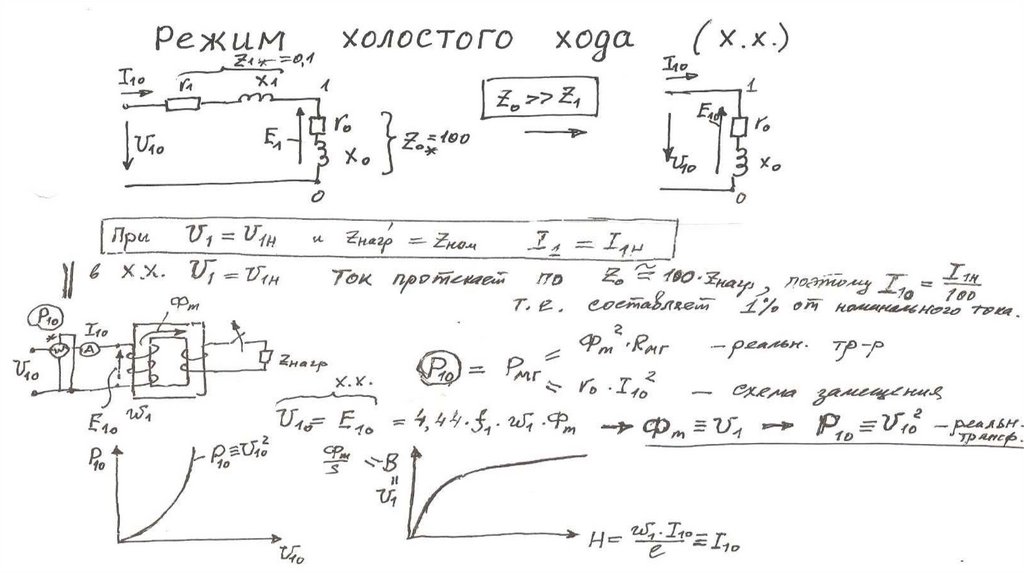 Режим холостого хода (х.х.)
Z1* = 0,1
I10 r1 x1 1
U10 E1 r0 x0 Z0* = 100
0
Z0 >> Z1
I10 1
U10 E10 r0 x0
0
При U1 = U1н и Zнагр' = Zном I1 = I1н
в х.х. U1 = U1н Ток протекает по Z0 ≅ 100·Zнагр, поэтому I10 = I1н/100
т.е. составляет 1% от номинального тока.
P10 Фm
* I10
W A
U10 Zнагр
E10 w1
P10 = Pмг = Фm²·Rмг – реальн. тр-р
= r0·I10² – схема замещения
х.х.
U10 = E10 = 4,44·f1·w1·Фm → Фm ≡ U1 → P10 ≡ U10² – реальн. трансф.
P10 P10 ≡ U10²
U10
Фm/s = B
U1
H = w1·I10/ℓ ≡ I10